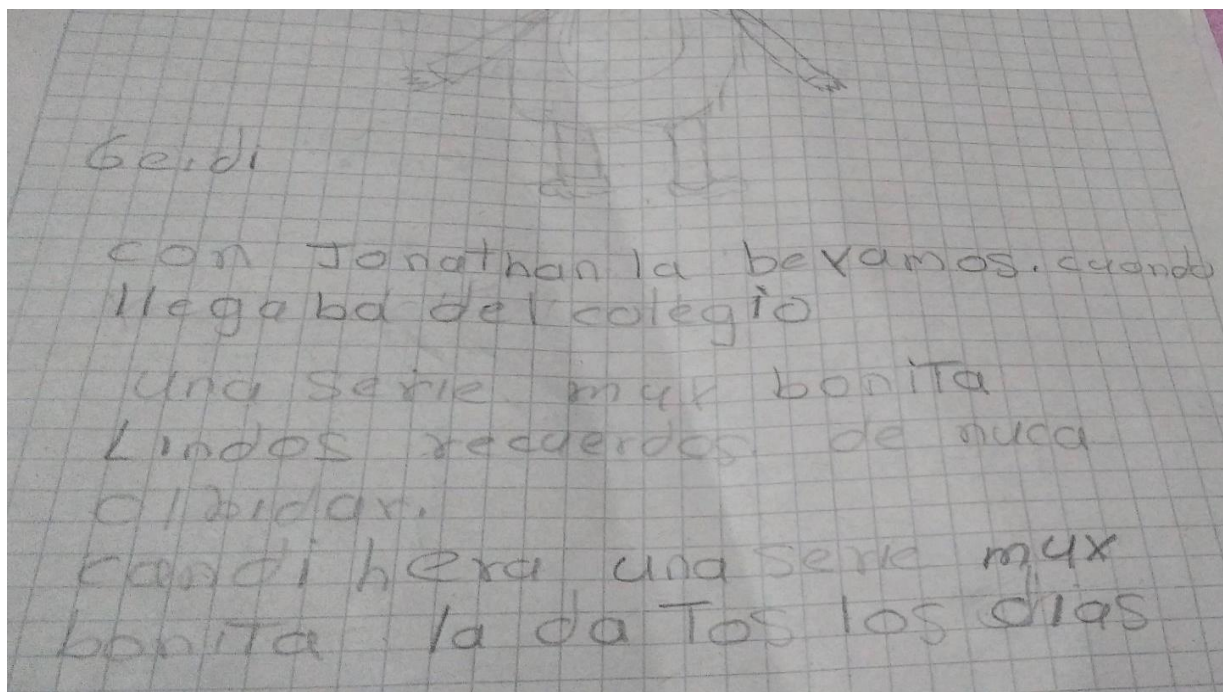 Geidi
con Jonathan la beyamos. cuando
llegaba del colegio
una serie muy bonita
Lindos recuerdos de nuca
olbidar.
candi hera una serie muy
bonita la da Tos los dias